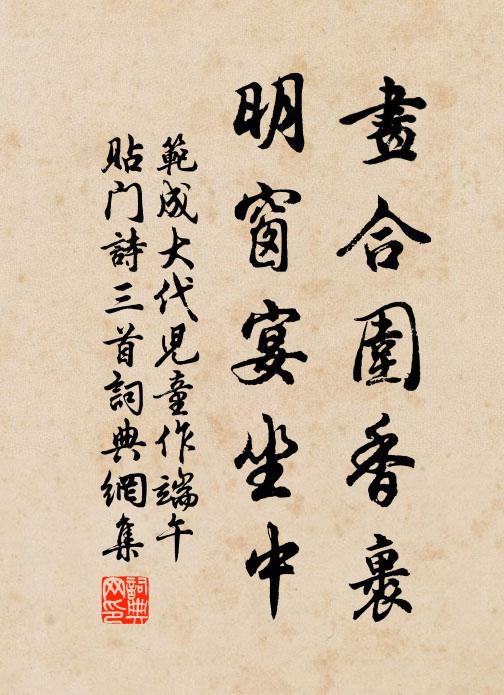 畫合圍香裹
明窗宴坐中
範成大代児童作端午
貼门詩三首詞典網集
詞典